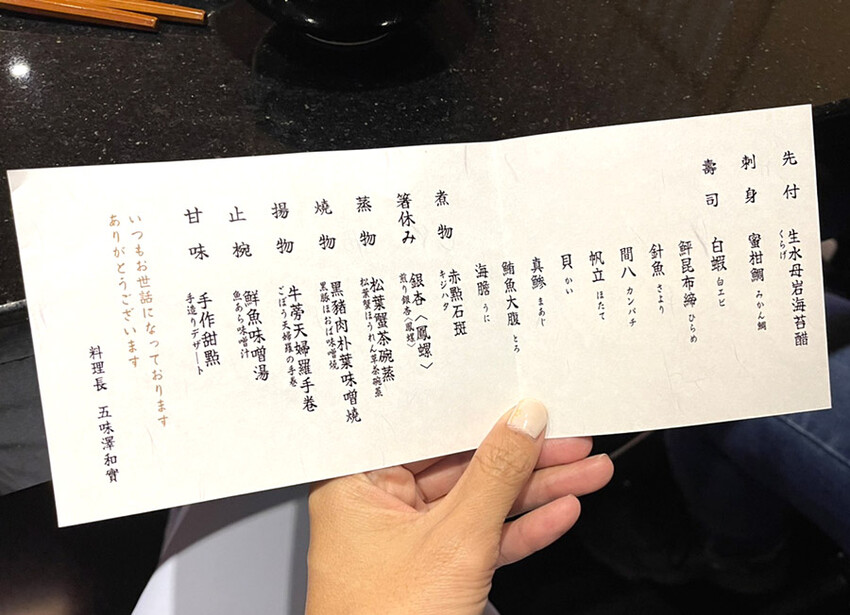 先付
生水母岩海苔醋
くらげ
刺身
蜜柑鯛 みかん鯛
壽司
白蝦 白エビ
鮃昆布締 ひらめ
針魚 さより
間八 カンパチ
帆立 ほたて
貝 かい
真鰺 まあじ
鮪魚大腹 とろ
海膽 うに
煮物
赤點石斑
キジハタ
箸休み
銀杏〈鳳螺〉
煎り銀杏〈鳳螺〉
蒸物
松葉蟹茶碗蒸
松葉蟹ほうれん草茶碗蒸
燒物
黑豬肉朴葉味噌燒
黒豚ほおば味噌焼
揚物
牛蒡天婦羅手卷
ごぼう天婦羅の手巻
止椀
鮮魚味噌湯
魚あら味噌汁
甘味
手作甜點
手造りデザート
いつもお世話になっております
ありがとうございます
料理長 五味澤和實